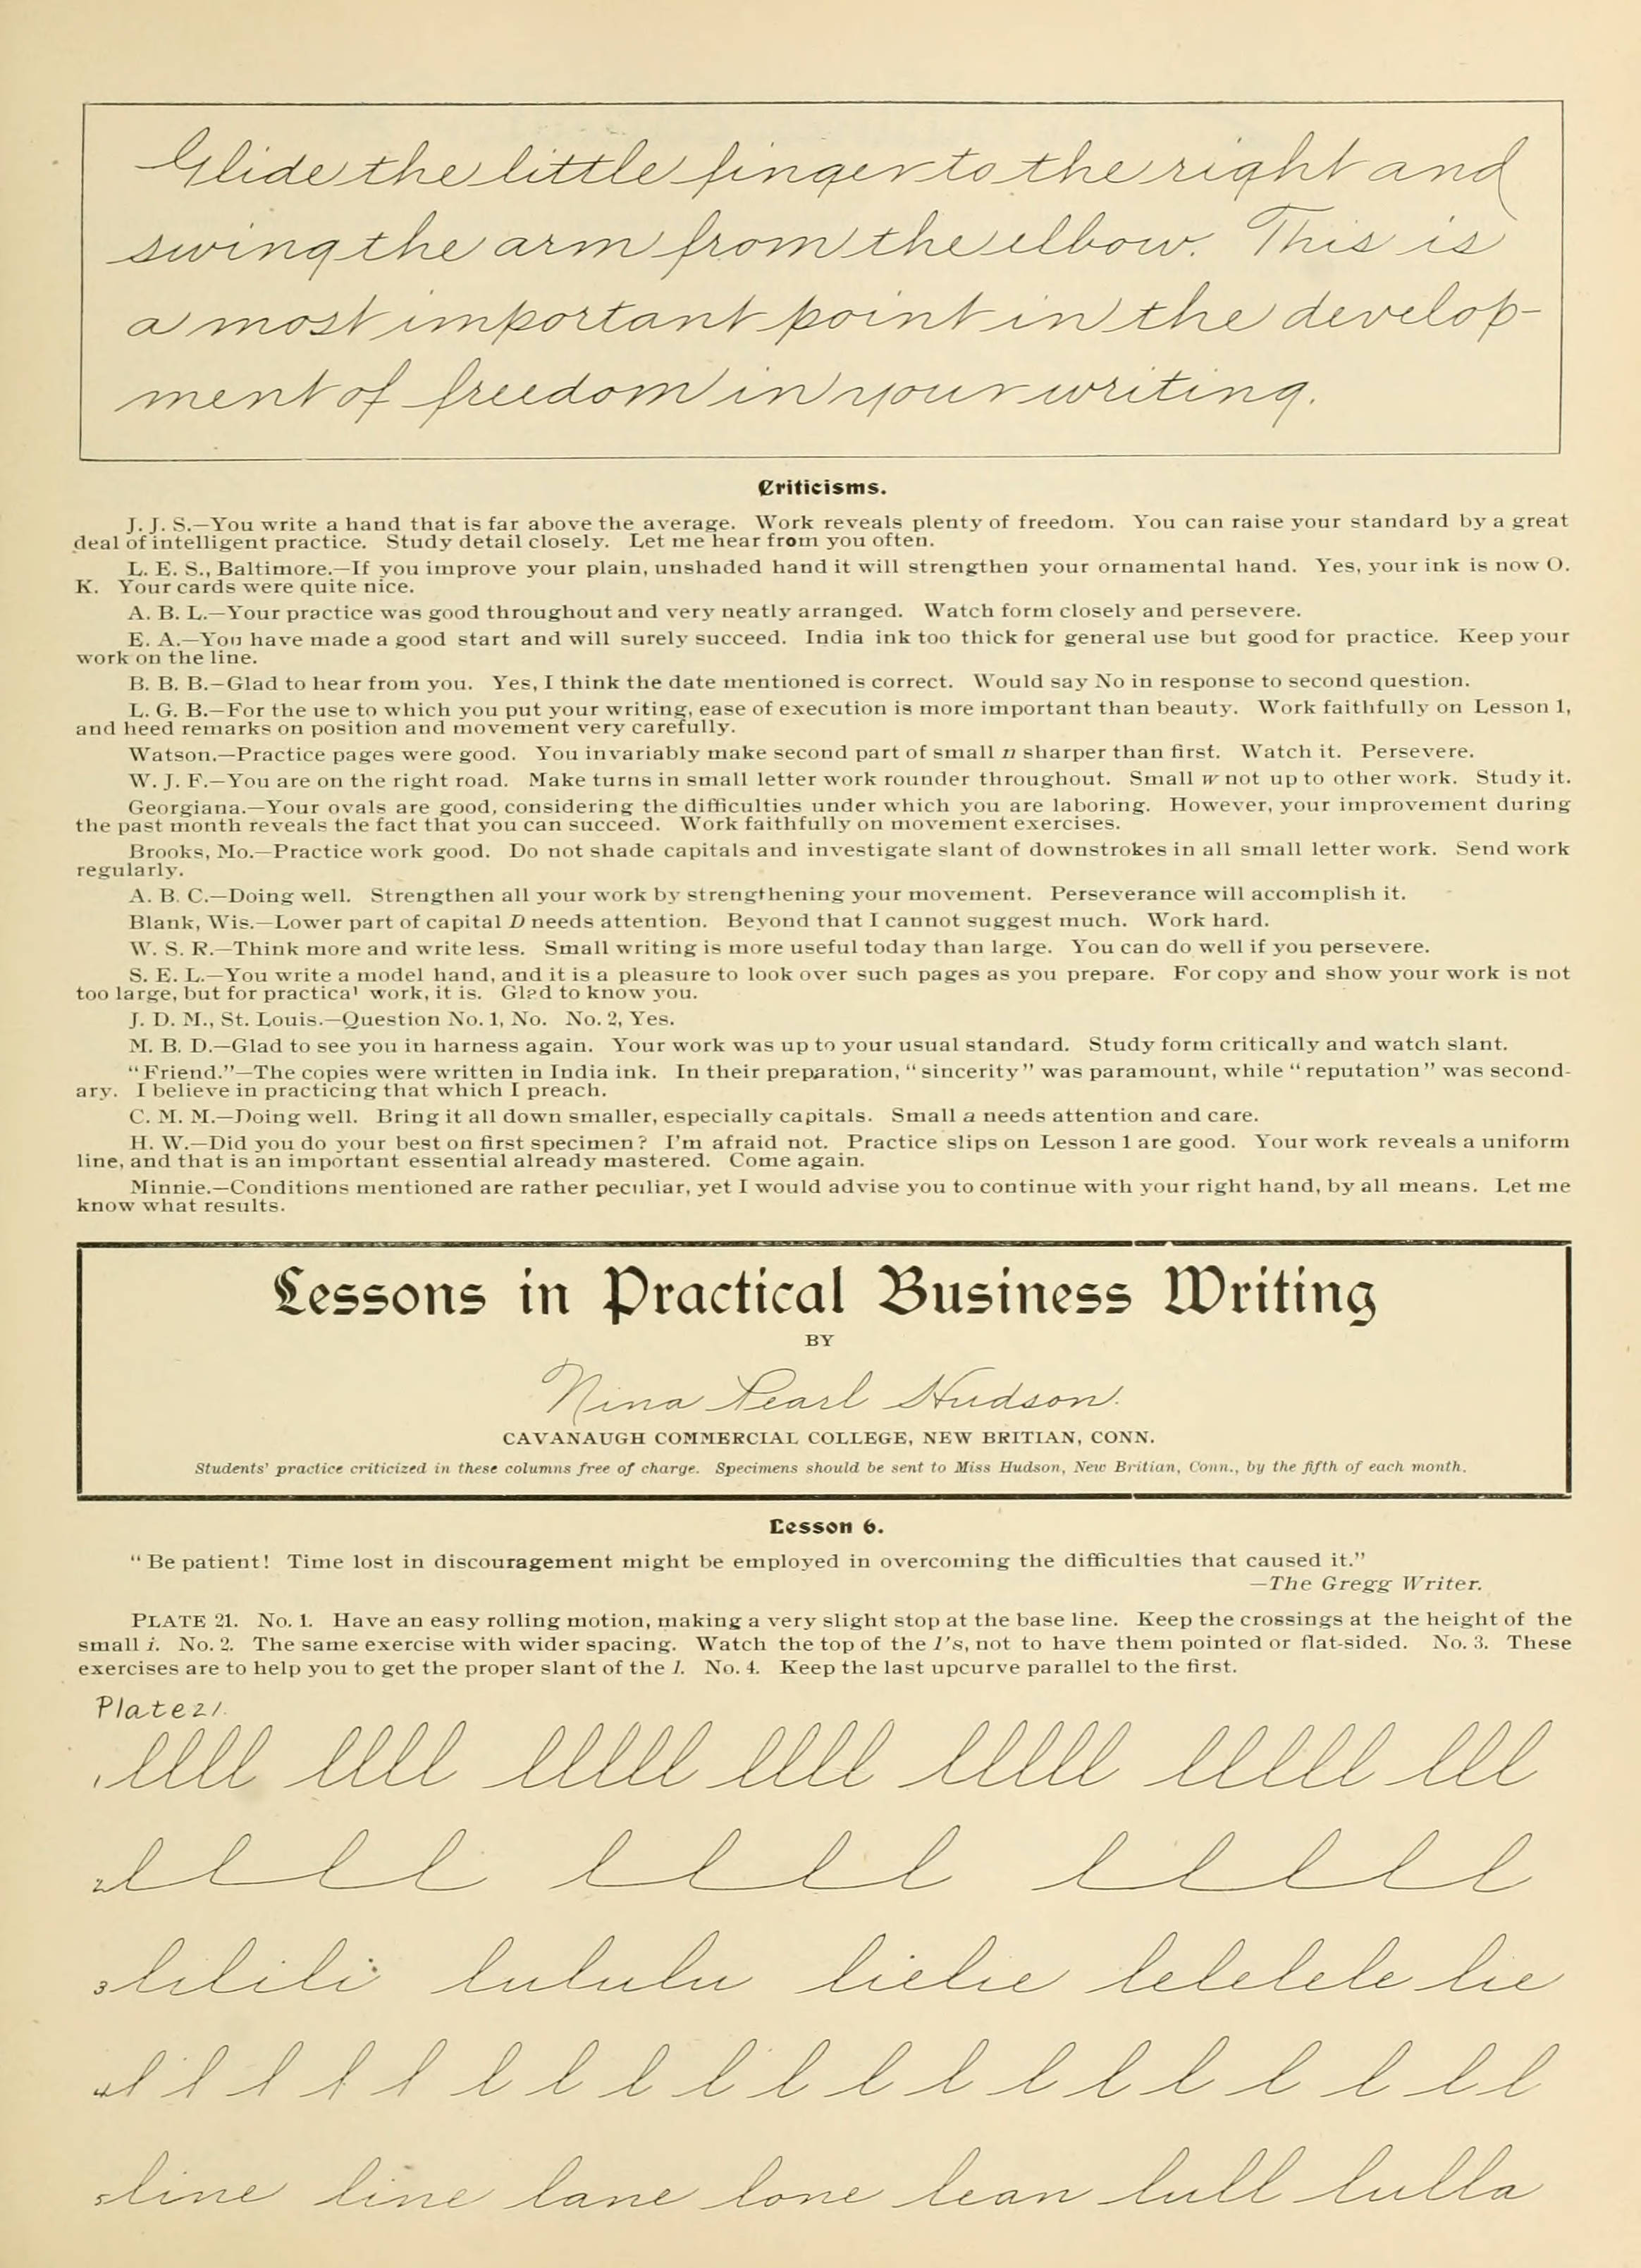 Glide the little finger to the right and
swing the arm from the elbow. This is
a most important point in the develop-
ment of freedom in your writing.
Criticisms.
J. J. S.—You write a hand that is far above the average. Work reveals plenty of freedom. You can raise your standard by a great
deal of intelligent practice. Study detail closely. Let me hear from you often.
L. E. S., Baltimore.—If you improve your plain, unshaded hand it will strengthen your ornamental hand. Yes, your ink is now O.
K. Your cards were quite nice.
A. B. L.—Your practice was good throughout and very neatly arranged. Watch form closely and persevere.
E. A.—You have made a good start and will surely succeed. India ink too thick for general use but good for practice. Keep your
work on the line.
B. B. B.—Glad to hear from you. Yes, I think the date mentioned is correct. Would say No in response to second question.
L. G. B.—For the use to which you put your writing, ease of execution is more important than beauty. Work faithfully on Lesson 1,
and heed remarks on position and movement very carefully.
Watson.—Practice pages were good. You invariably make second part of small n sharper than first. Watch it. Persevere.
W. J. F.—You are on the right road. Make turns in small letter work rounder throughout. Small w not up to other work. Study it.
Georgiana.—Your ovals are good, considering the difficulties under which you are laboring. However, your improvement during
the past month reveals the fact that you can succeed. Work faithfully on movement exercises.
Brooks, Mo.—Practice work good. Do not shade capitals and investigate slant of downstrokes in all small letter work. Send work
regularly.
A. B. C.—Doing well. Strengthen all your work by strengthening your movement. Perseverance will accomplish it.
Blank, Wis.—Lower part of capital D needs attention. Beyond that I cannot suggest much. Work hard.
W. S. R.—Think more and write less. Small writing is more useful today than large. You can do well if you persevere.
S. E. L.—You write a model hand, and it is a pleasure to look over such pages as you prepare. For copy and show your work is not
too large, but for practical work, it is. Glad to know you.
J. D. M., St. Louis.—Question No. 1, No. No. 2, Yes.
M. B. D.—Glad to see you in harness again. Your work was up to your usual standard. Study form critically and watch slant.
"Friend."—The copies were written in India ink. In their preparation, "sincerity" was paramount, while "reputation" was second-
ary. I believe in practicing that which I preach.
C. M. M.—Doing well. Bring it all down smaller, especially capitals. Small a needs attention and care.
H. W.—Did you do your best on first specimen? I'm afraid not. Practice slips on Lesson 1 are good. Your work reveals a uniform
line, and that is an important essential already mastered. Come again.
Minnie.—Conditions mentioned are rather peculiar, yet I would advise you to continue with your right hand, by all means. Let me
know what results.
Lessons in Practical Business Writing
BY
Nina Pearl Hudson.
CAVANAUGH COMMERCIAL COLLEGE, NEW BRITIAN, CONN.
Students' practice criticized in these columns free of charge. Specimens should be sent to Miss Hudson, New Britian, Conn., by the fifth of each month.
Lesson 6.
"Be patient! Time lost in discouragement might be employed in overcoming the difficulties that caused it."
—The Gregg Writer.
PLATE 21. No. 1. Have an easy rolling motion, making a very slight stop at the base line. Keep the crossings at the height of the
small i. No. 2. The same exercise with wider spacing. Watch the top of the l's, not to have them pointed or flat-sided. No. 3. These
exercises are to help you to get the proper slant of the l. No. 4. Keep the last upcurve parallel to the first.
Plate 21.
1 llll llll lllll llll lllll lllll lll
2 l l l l l l l l l l l l l
3 lilili lululu lielie lelelele lie
4 l l l l l l l l l l l l l l l l l l l
5 line line lane lone lean lull lulla